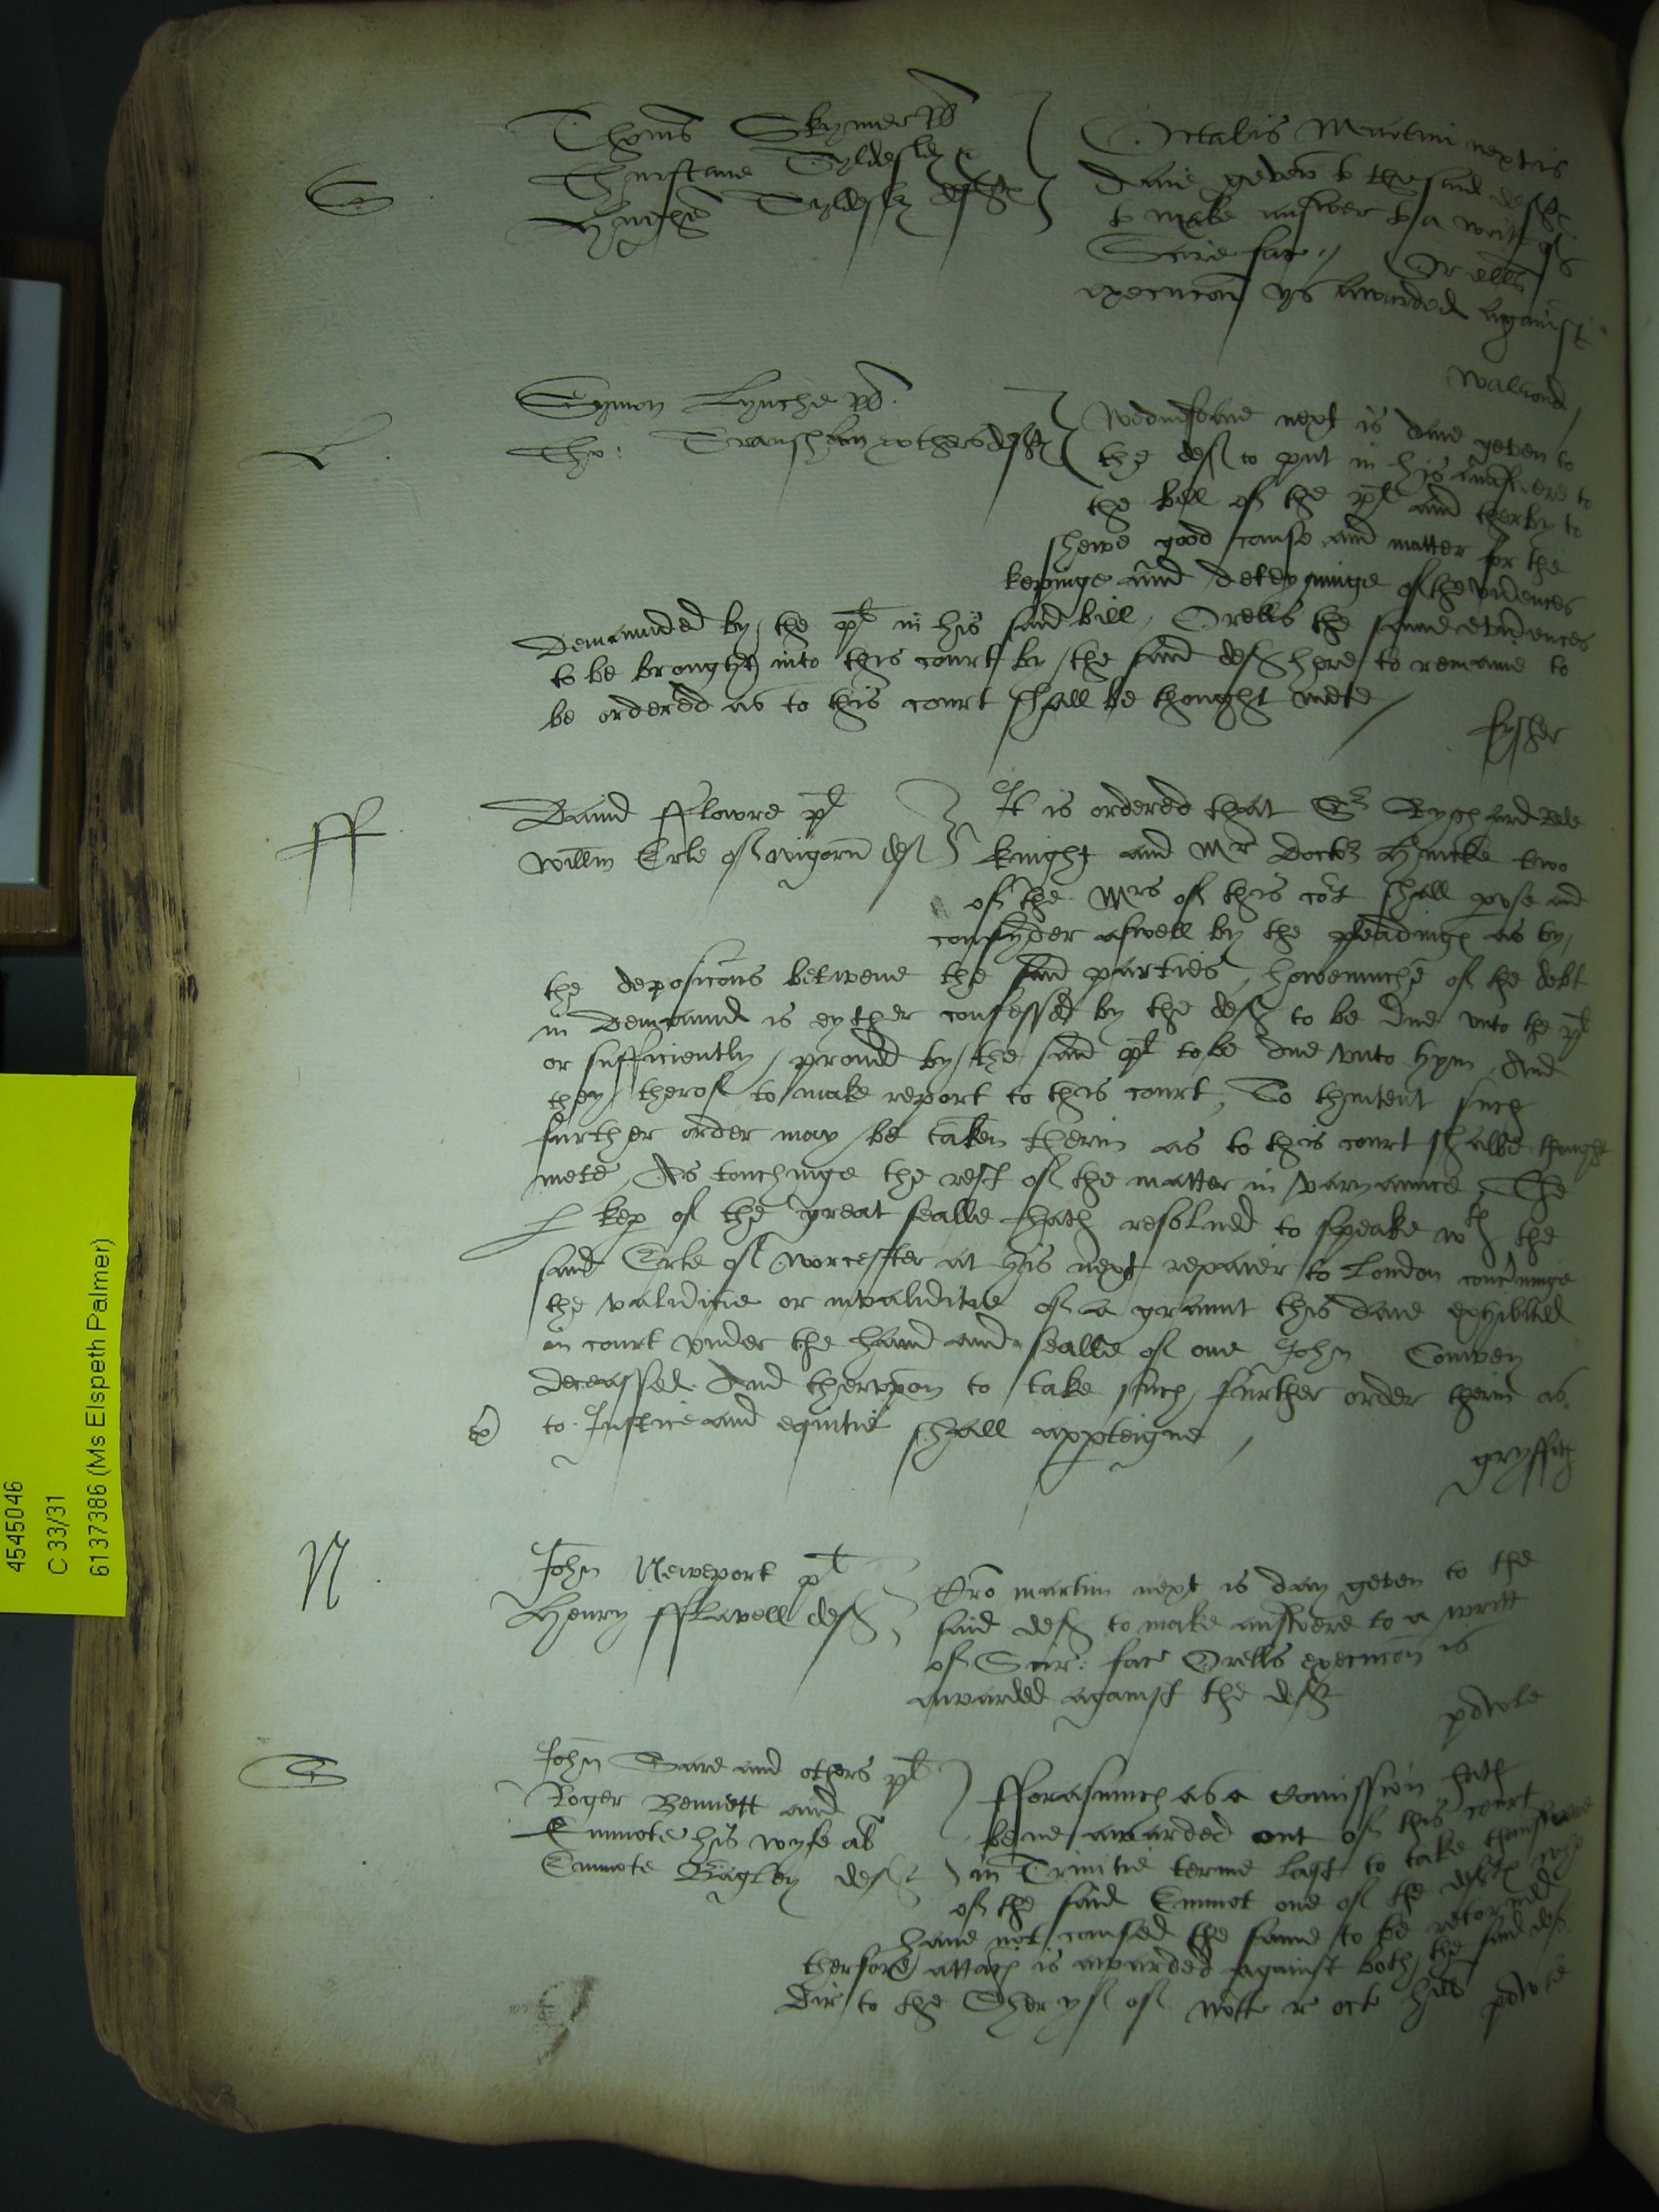 S
Thoms Skymer pl
Thurstane Tyldesley &
Hughe Tyldesley deftes
Octabis Martini next is
daie geven to the said deftes
to make answer to a writt of
Scire fac Or elles
execucon ys awarded against
Walrond
L
Symon Lynche pl
Tho: and others deftes
Wednesdaie next is daie geven to
the deft to put in his answere to
the bill of the pl and therby to
shewe good cause and matter for the
kepinge and deteyninge of the evidences
demaunded by the pl in his said bill, Orells the same evidences
to be brought into this court by the said deft here to remaine to
be ordered as to this court shall be thought mete
fysher
ff
David fflowre pl
Willm Erle of Wigorn def
It is ordered that Sr Rychard Rede
knight and Mr Doctor Huicke two
of the Mrs of this cort shall pervse and
consyder aswell by the pleadinges as by
the deposicons betwene the said parties, howemuche of the debt
in demaund is eyther confessed by the deft to be due vnto the pl
or sufficiently proued by the said pl to be due vnto hym, And
they therof to make report to this court, To thintent such
further order may be taken therin as to this court shalbe thought
mete, As touchinge the rest of the matter in varyaunce, The
L keper of the great sealle hath resolued to speake wth the
said Erle of Worcester at his next repaier to London concerninge
the validitie or invaliditie of a graunt this daie exhibited
in court vnder the hand and sealle of one John Conwey
deceassed And thervpon to take such further order therin as
to Justice and equitie shall apperteigne
gryffith
N
John Neweport pl
Henry fflavell deft
Cro martini next is day geven to the
said deft to make answere to a writt
of Scir: fac Orells execucon is
awarded against the deft
powle
G
John Gare and others pl
Roger Bennett and
Emmote his wyfe als
Emmote Bagley deftes
fforasmuch as a comission hath
bene awarded out of this court
in Trinitie terme last to take thanswere
of the said Emmot one of the deftes who
haue not caused the same to be retorned
therfore attach is awarded against both the said def
Dir to the Sheryf of Nott r oct hill
powle
4545046
C 33/31
6137386 (Ms Elspeth Palmer)